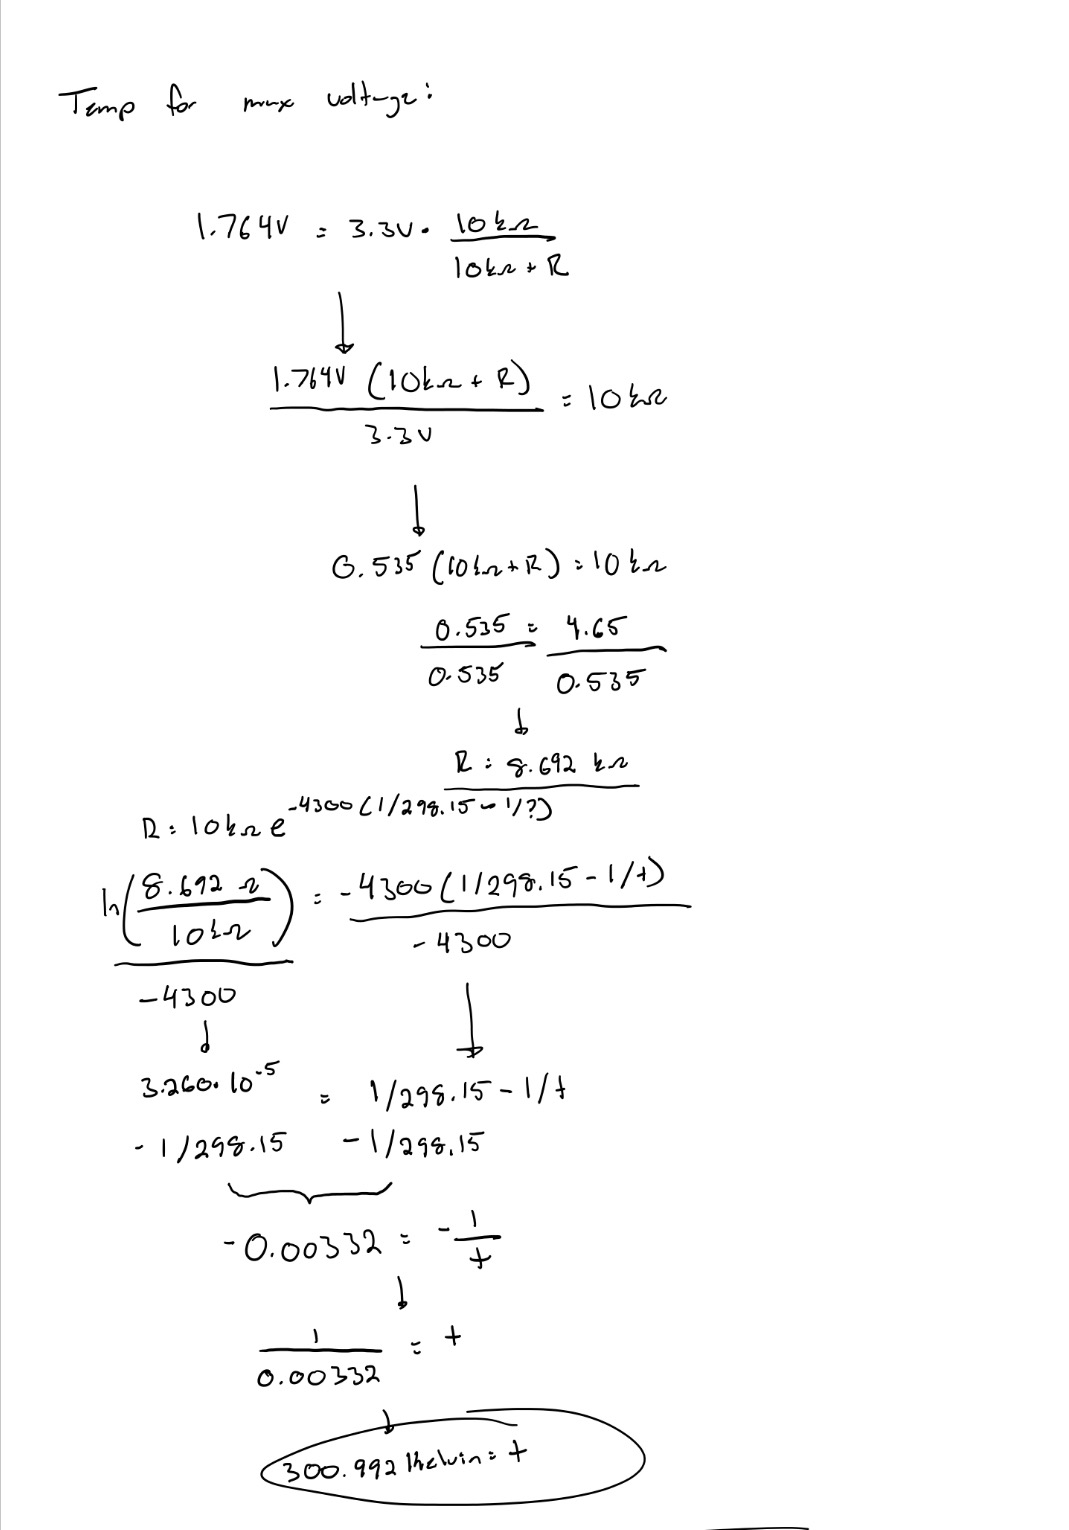 Temp for max voltage:
1.764V = 3.3V · 10kΩ / (10kΩ + R)
↓
1.764V (10kΩ + R) / 3.3V = 10kΩ
↓
0.535 (10kΩ + R) = 10kΩ
0.535 / 0.535 = 4.65 / 0.535
↓
R = 8.692 kΩ
R = 10kΩ e^-4300 (1/298.15 - 1/?)
ln(8.692 Ω / 10kΩ) / -4300 = -4300 (1/298.15 - 1/t) / -4300
↓ ↓
3.260·10^-5 = 1/298.15 - 1/t
- 1/298.15 - 1/298.15
-0.00332 = - 1/t
↓
1 / 0.00332 = t
↓
300.992 Kelvin = t